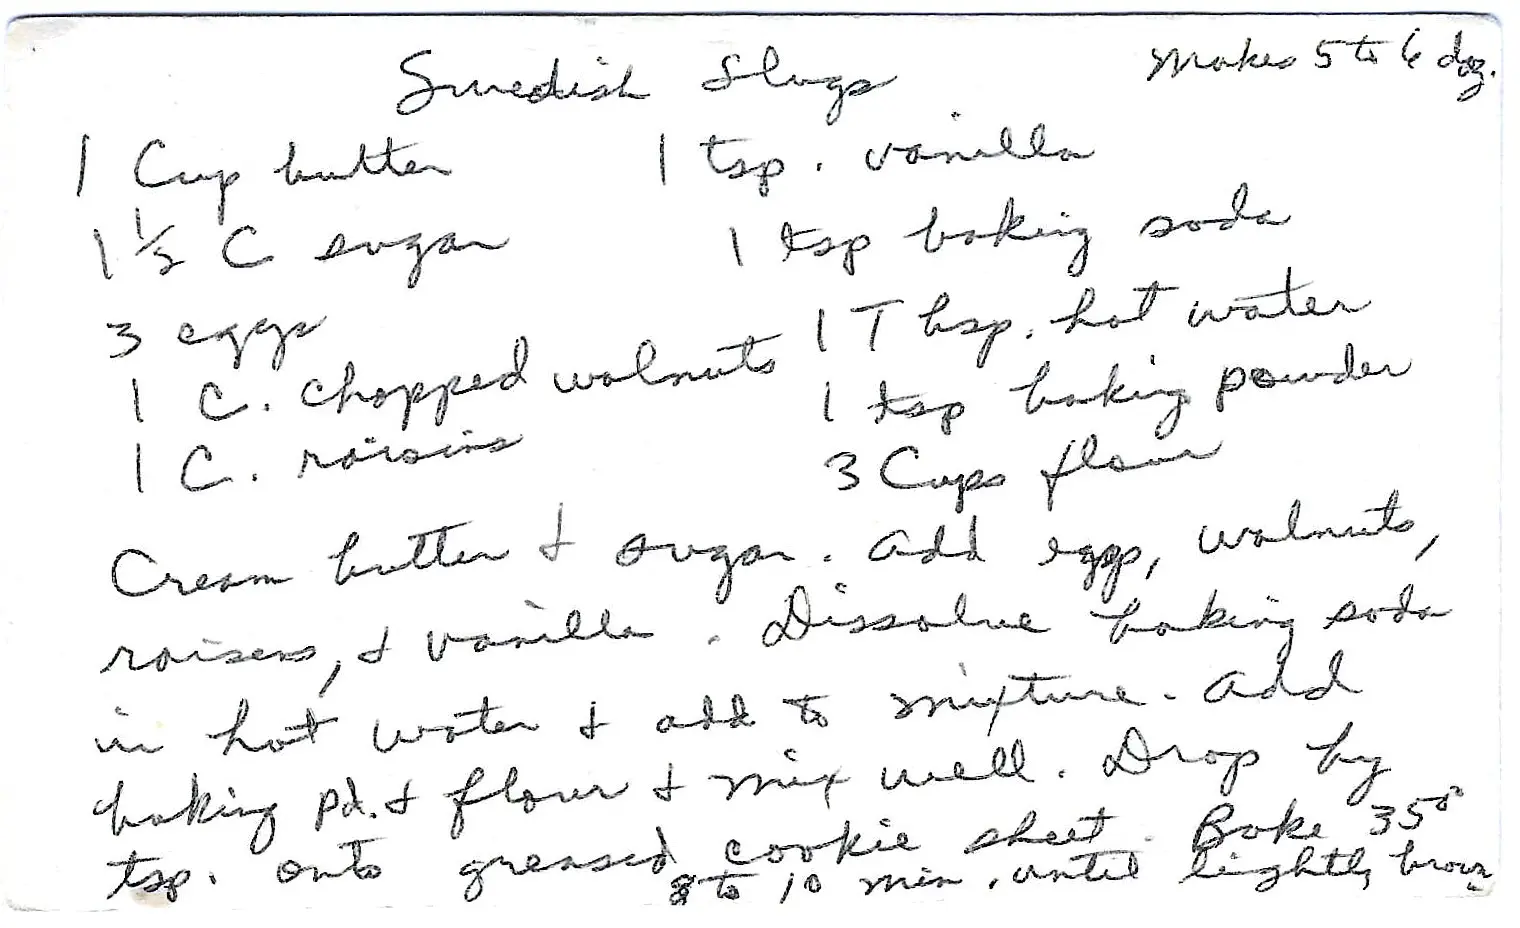 Swedish Slugs Makes 5 to 6 doz.
1 Cup butter 1 tsp. vanilla
1 1/2 C sugar 1 tsp baking soda
3 eggs 1 Tbsp. hot water
1 C. chopped walnuts 1 tsp baking powder
1 C. raisins 3 Cups flour
Cream butter & sugar. Add eggs, walnuts,
raisens, & vanilla. Dissolve baking soda
in hot water & add to mixture. Add
baking pd. & flour & mix well. Drop by
tsp. onto greased cookie sheet. Bake 350°
8 to 10 min. until lightly brown